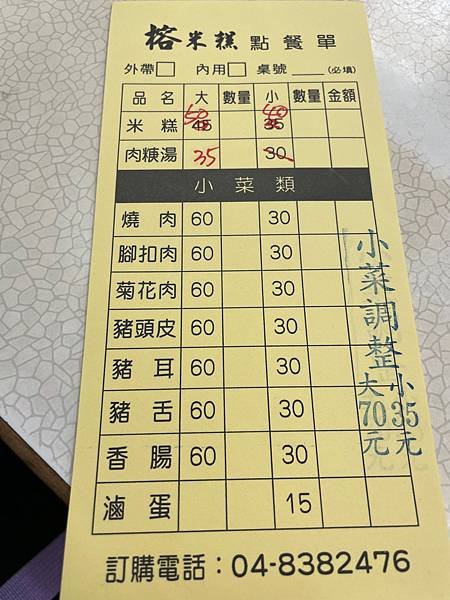 榕米糕 點餐單
外帶□ 內用□ 桌號___(必填)
品名 大 數量 小 數量 金額
米糕 45 50 35 40
肉焿湯 35 30
小菜類
燒肉 60 30
腳扣肉 60 30
菊花肉 60 30
豬頭皮 60 30
豬耳 60 30
豬舌 60 30
香腸 60 30
滷蛋 15
小菜調整
小35元
大70元
訂購電話：04-8382476